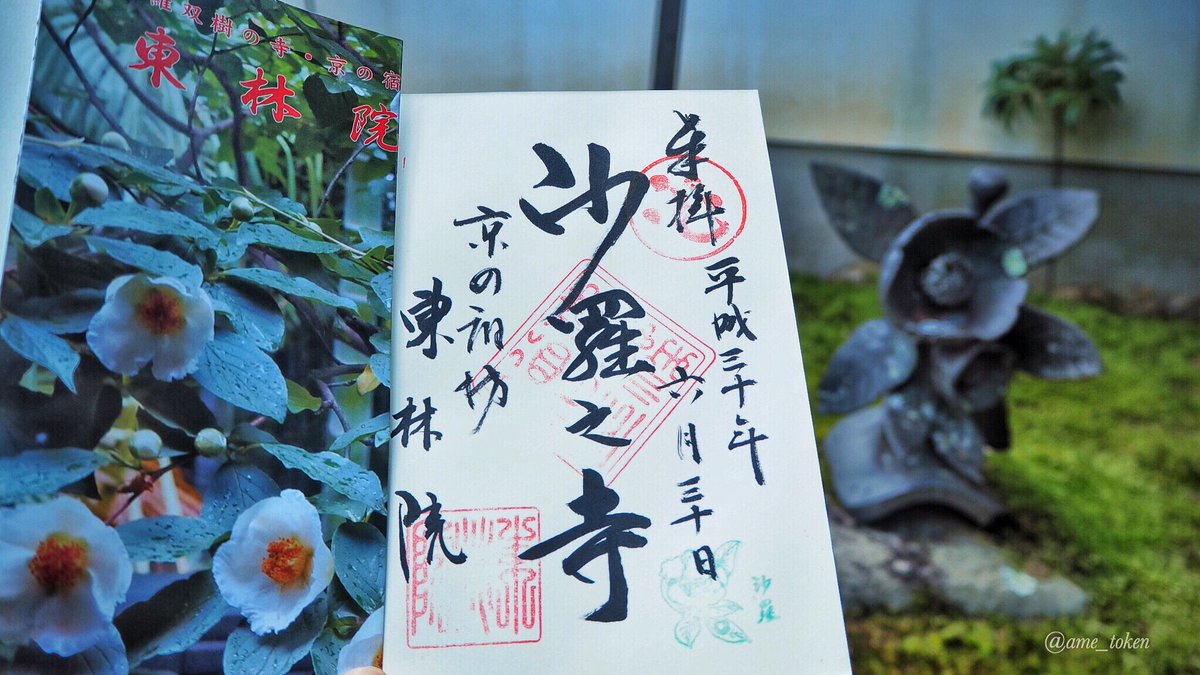 羅双樹の寺・京の宿
東林院
奉拝
平城三十年
六月三十日
沙羅之寺
京の宿坊
東林院
沙羅
@ame_token